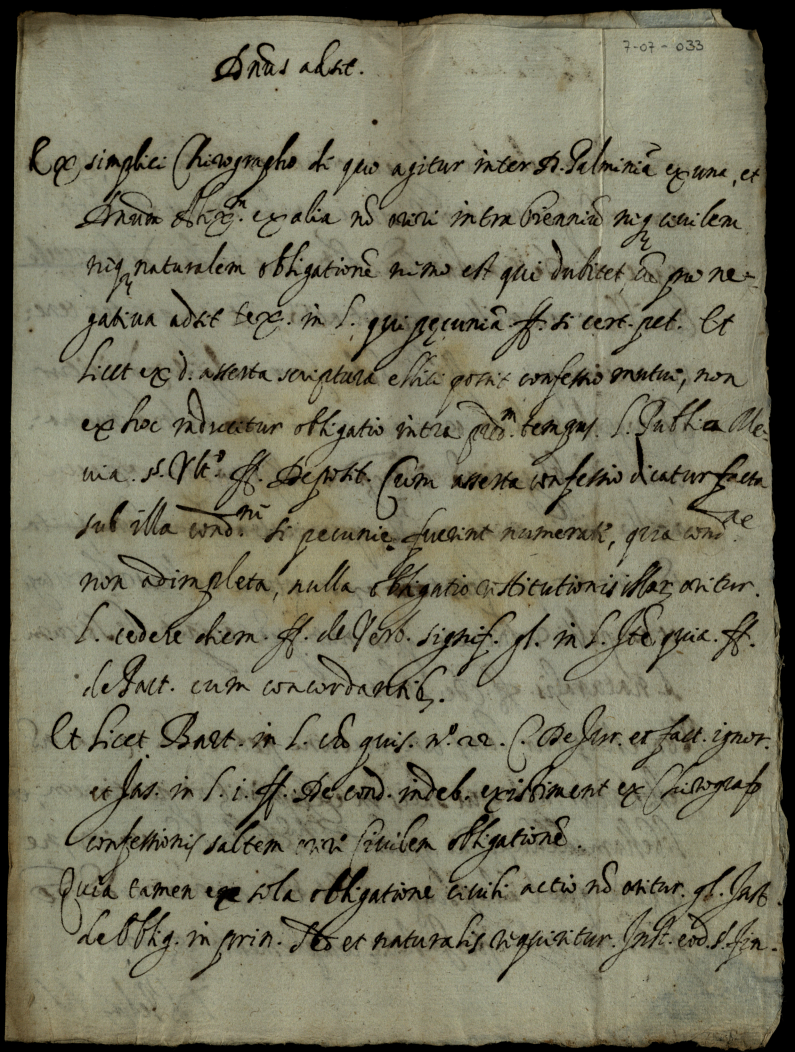 7-07-033
Dnus adsit.
Ex simplici Chirographo de quo agitur inter D. Palminiā ex una, et
Dnum ex alia nō oriri intra biennium neq civilem
neq naturalem obligationē nemo est qui dubitet, cū pro ne-
gativa adsit tex. in l. qui pecuniā ff. si cert. pet. Et
licet ex d. asserta scriptura elici possit confessio mutui, non
ex hoc inducitur obligatio intra pred.m tempus. l. Publia Me-
via. §. Ult.o ff. Deposit. Cum asserta confessio dicatur facta
sub illa cond.ni si pecunie fuerint numerate, qua cond.ne
non adimpleta, nulla obligatio restitutionis illar oritur.
l. cedere diem. ff. de Verb. signif. gl. in l. Itē quia. ff.
de Pact. cum concordantib.
Et licet Bart. in l. cū quis. n.o 22. C. De Jur. et fact. ignor.
et Jas. in l. i. ff. De cond. indeb. existiment ex Chirograpo
confessionis saltem oriri Civilem obligationē.
Quia tamen ex sola obligatione civili actio nō oritur. gl. Inst.
de Oblig. in prin. Sed et naturalis requiritur. Inst. eod. §. fin.